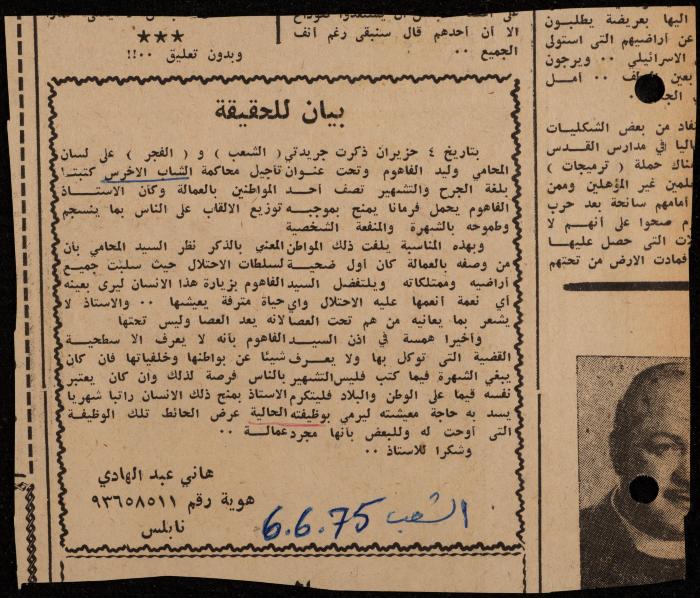 الا أن أحدهم قال سنبقى رغم أنف
الجميع ..
***
وبدون تعليق ..!!
بيان للحقيقة
بتاريخ ٤ حزيران ذكرت جريدتي ( الشعب ) و ( الفجر ) على لسان
المحامي وليد الفاهوم وتحت عنوان تأجيل محاكمة الشاب الاخرس كتبتا
بلغة الجرح والتشهير تصف أحد المواطنين بالعمالة وكأن الاستاذ
الفاهوم يحمل فرمانا يمنح بموجبه توزيع الالقاب على الناس بما ينسجم
وطموحه بالشهرة والمنفعة الشخصية
وبهذه المناسبة يلفت ذلك المواطن المعني بالذكر نظر السيد المحامي بأن
من وصفه بالعمالة كان أول ضحية لسلطات الاحتلال حيث سلبت جميع
أراضيه وممتلكاته ويلتفضل السيد الفاهوم بزيارة هذا الانسان ليرى بعينه
أي نعمة أنعمها عليه الاحتلال واي حياة مترفة يعيشها .. والاستاذ لا
يشعر بما يعانيه من هم تحت العصا لانه يعد العصا وليس تحتها
وأخيرا همسة في اذن السيد الفاهوم بأنه لا يعرف الا سطحية
القضية التي توكل بها ولا يعرف شيئا عن بواطنها وخلفياتها فان كان
يبغي الشهرة فيما كتب فليس التشهير بالناس فرصة لذلك وان كان يعتبر
نفسه قيما على الوطن والبلاد فليتكرم الاستاذ بمنح ذلك الانسان راتبا شهريا
يسد به حاجة معيشته ليرمي بوظيفته الحالية عرض الحائط تلك الوظيفة
التي أوحت له وللبعض بأنها مجرد عمالة ..
وشكرا للاستاذ ..
هاني عبد الهادي
هوية رقم ٩٣٦٥٨٥١١
نابلس
الشعب 6.6.75
اليها بعريضة يطلبون
عن أراضيهم التي استولى
الاسرائيلي .. ويرجون
أمل
من بعض الشكليات
في مدارس القدس
حملة ( ترميجات )
غير المؤهلين وممن
أمامهم سانحة بعد حرب
صحوا على أنهم لا
التي حصل عليها
فمادت الارض من تحتهم